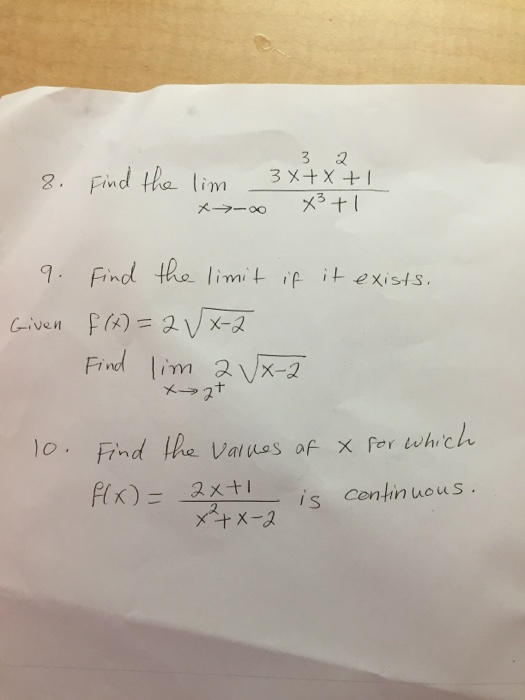 8. Find the lim 3x³+x²+1
x→-∞ x³+1
9. Find the limit if it exists.
Given f(x) = 2√x-2
Find lim 2√x-2
x→2⁺
10. Find the values of x for which
f(x) = 2x+1 is continuous.
x²+x-2